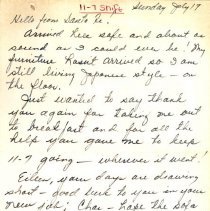 11-7 Shift Sunday July 17
Hello from Santa Fe!
Arrived here safe and about as
sound as I could ever be! My
furniture hasnt arrived so I am
still living Japanese style - on
the floor.
Just wanted to say thank
you again for taking me out
to breakfast and for all the
help you gave me to keep
11-7 going - wherever it went!
Eileen, your days are drawing
short - good luck to you in your
new job; Char - hope the sofa